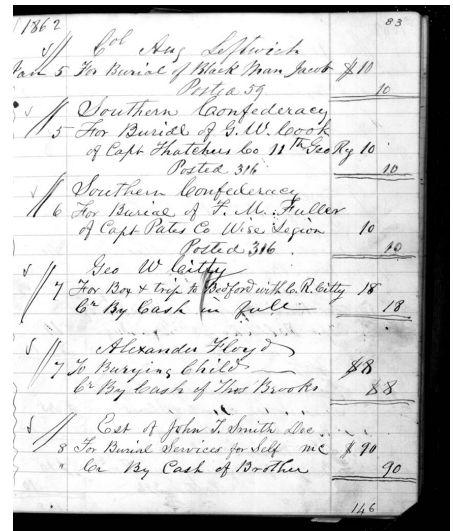 1862 83
Col Aug Leftwich
Jan 5 For Burial of Black Man Jacob $10
Posted 59 10
Southern Confederacy
5 For Burial of G. W. Cook
of Capt Thatchers Co 11th Geo Rg 10
Posted 316 10
Southern Confederacy
6 For Burial of F. M. Fuller
of Capt Pates Co Wise Legion 10
Posted 316 10
Geo W Citty
7 For Box & trip to Bedford with C. R. Citty 18
Cr By Cash in full 18
Alexander Floyd
7 To Burying Child $8
Cr By Cash of Thos Brooks $8
Est of John T. Smith Dec
8 For Burial Services for Self mc $90
" Cr By Cash of Brother 90
146